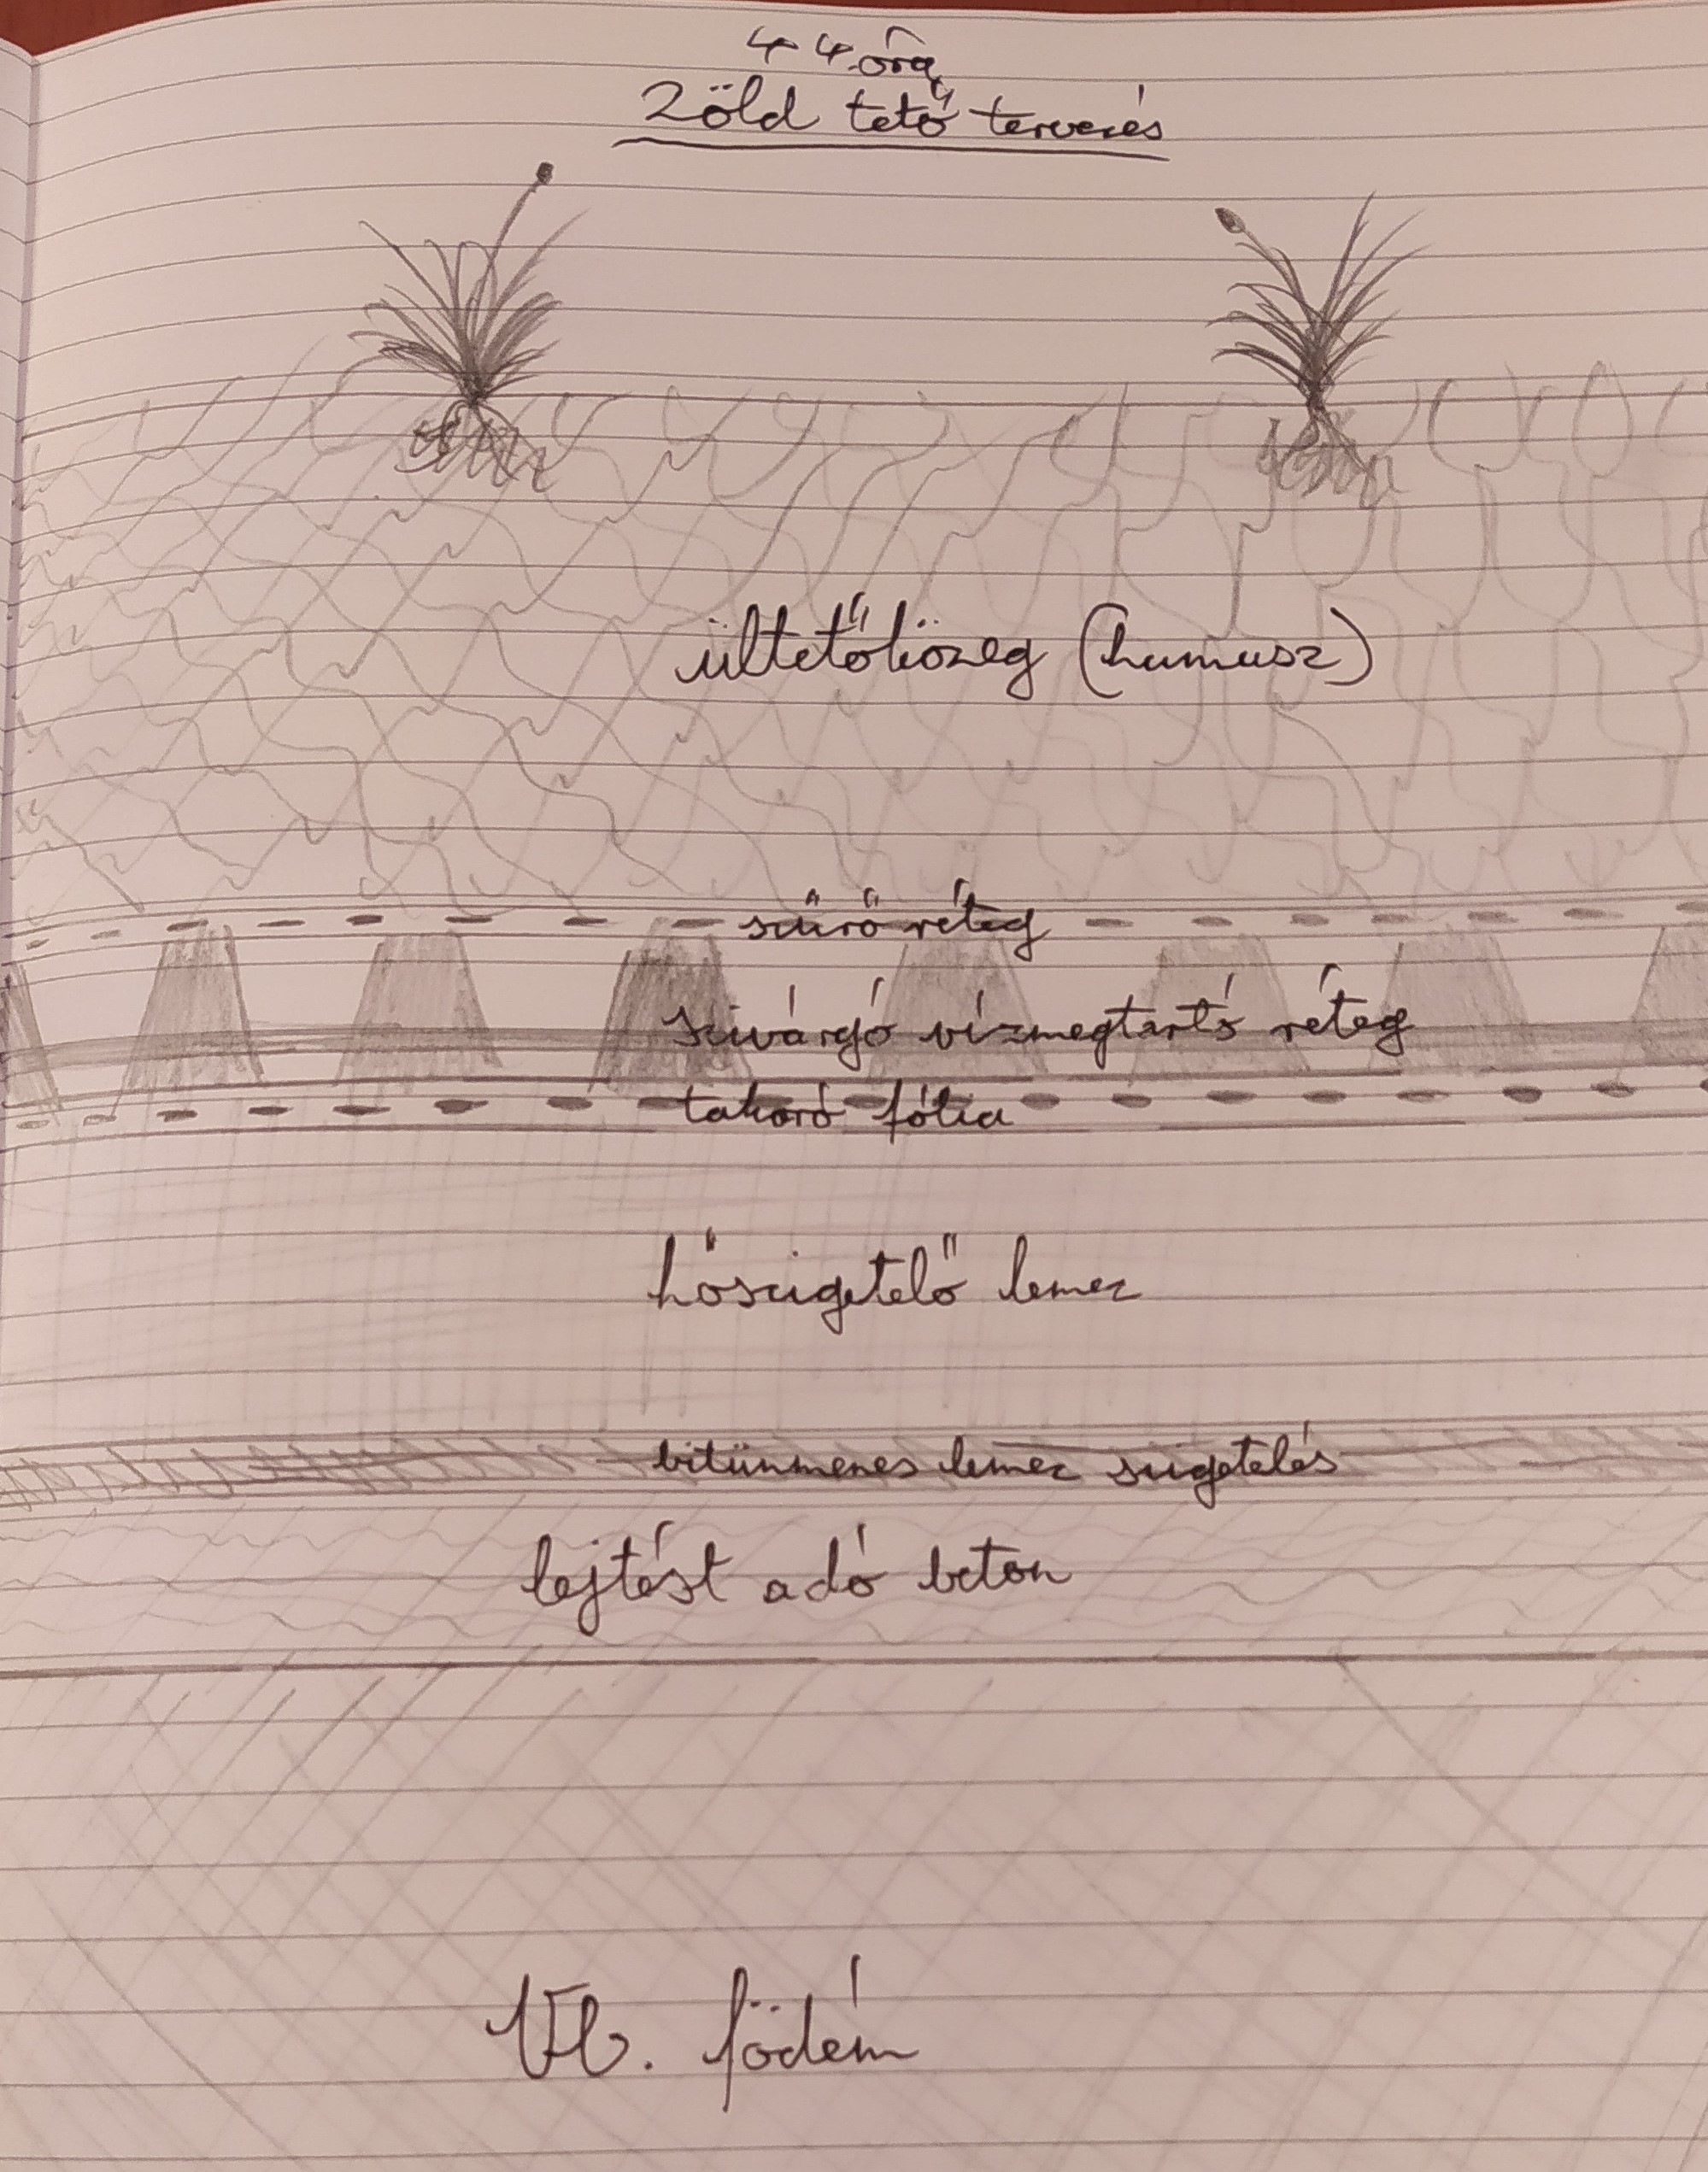 44. óra
Zöld tető tervezés
ültetőközeg (humusz)
szűrő réteg
szivárgó vízmegtartó réteg
takaró fólia
hőszigetelő lemez
bitünmenes lemez szigetelés
lejtést adó beton
Vb. födém